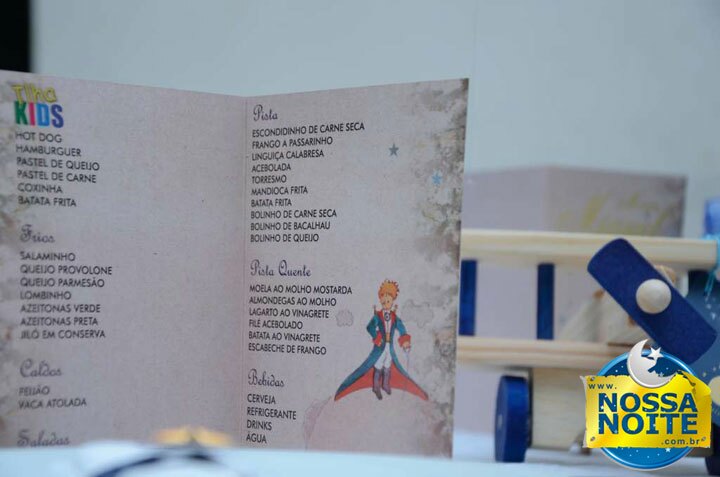 Ilha
KIDS
HOT DOG
HAMBURGUER
PASTEL DE QUEIJO
PASTEL DE CARNE
COXINHA
BATATA FRITA
Frios
SALAMINHO
QUEIJO PROVOLONE
QUEIJO PARMESÃO
LOMBINHO
AZEITONAS VERDE
AZEITONAS PRETA
JILÓ EM CONSERVA
Caldos
FEIJÃO
VACA ATOLADA
Saladas
Pista
ESCONDIDINHO DE CARNE SECA
FRANGO A PASSARINHO
LINGUIÇA CALABRESA
ACEBOLADA
TORRESMO
MANDIOCA FRITA
BATATA FRITA
BOLINHO DE CARNE SECA
BOLINHO DE BACALHAU
BOLINHO DE QUEIJO
Pista Quente
MOELA AO MOLHO MOSTARDA
ALMONDEGAS AO MOLHO
LAGARTO AO VINAGRETE
FILÉ ACEBOLADO
BATATA AO VINAGRETE
ESCABECHE DE FRANGO
Bebidas
CERVEJA
REFRIGERANTE
DRINKS
ÁGUA
www.
NOSSA
NOITE
.com.br